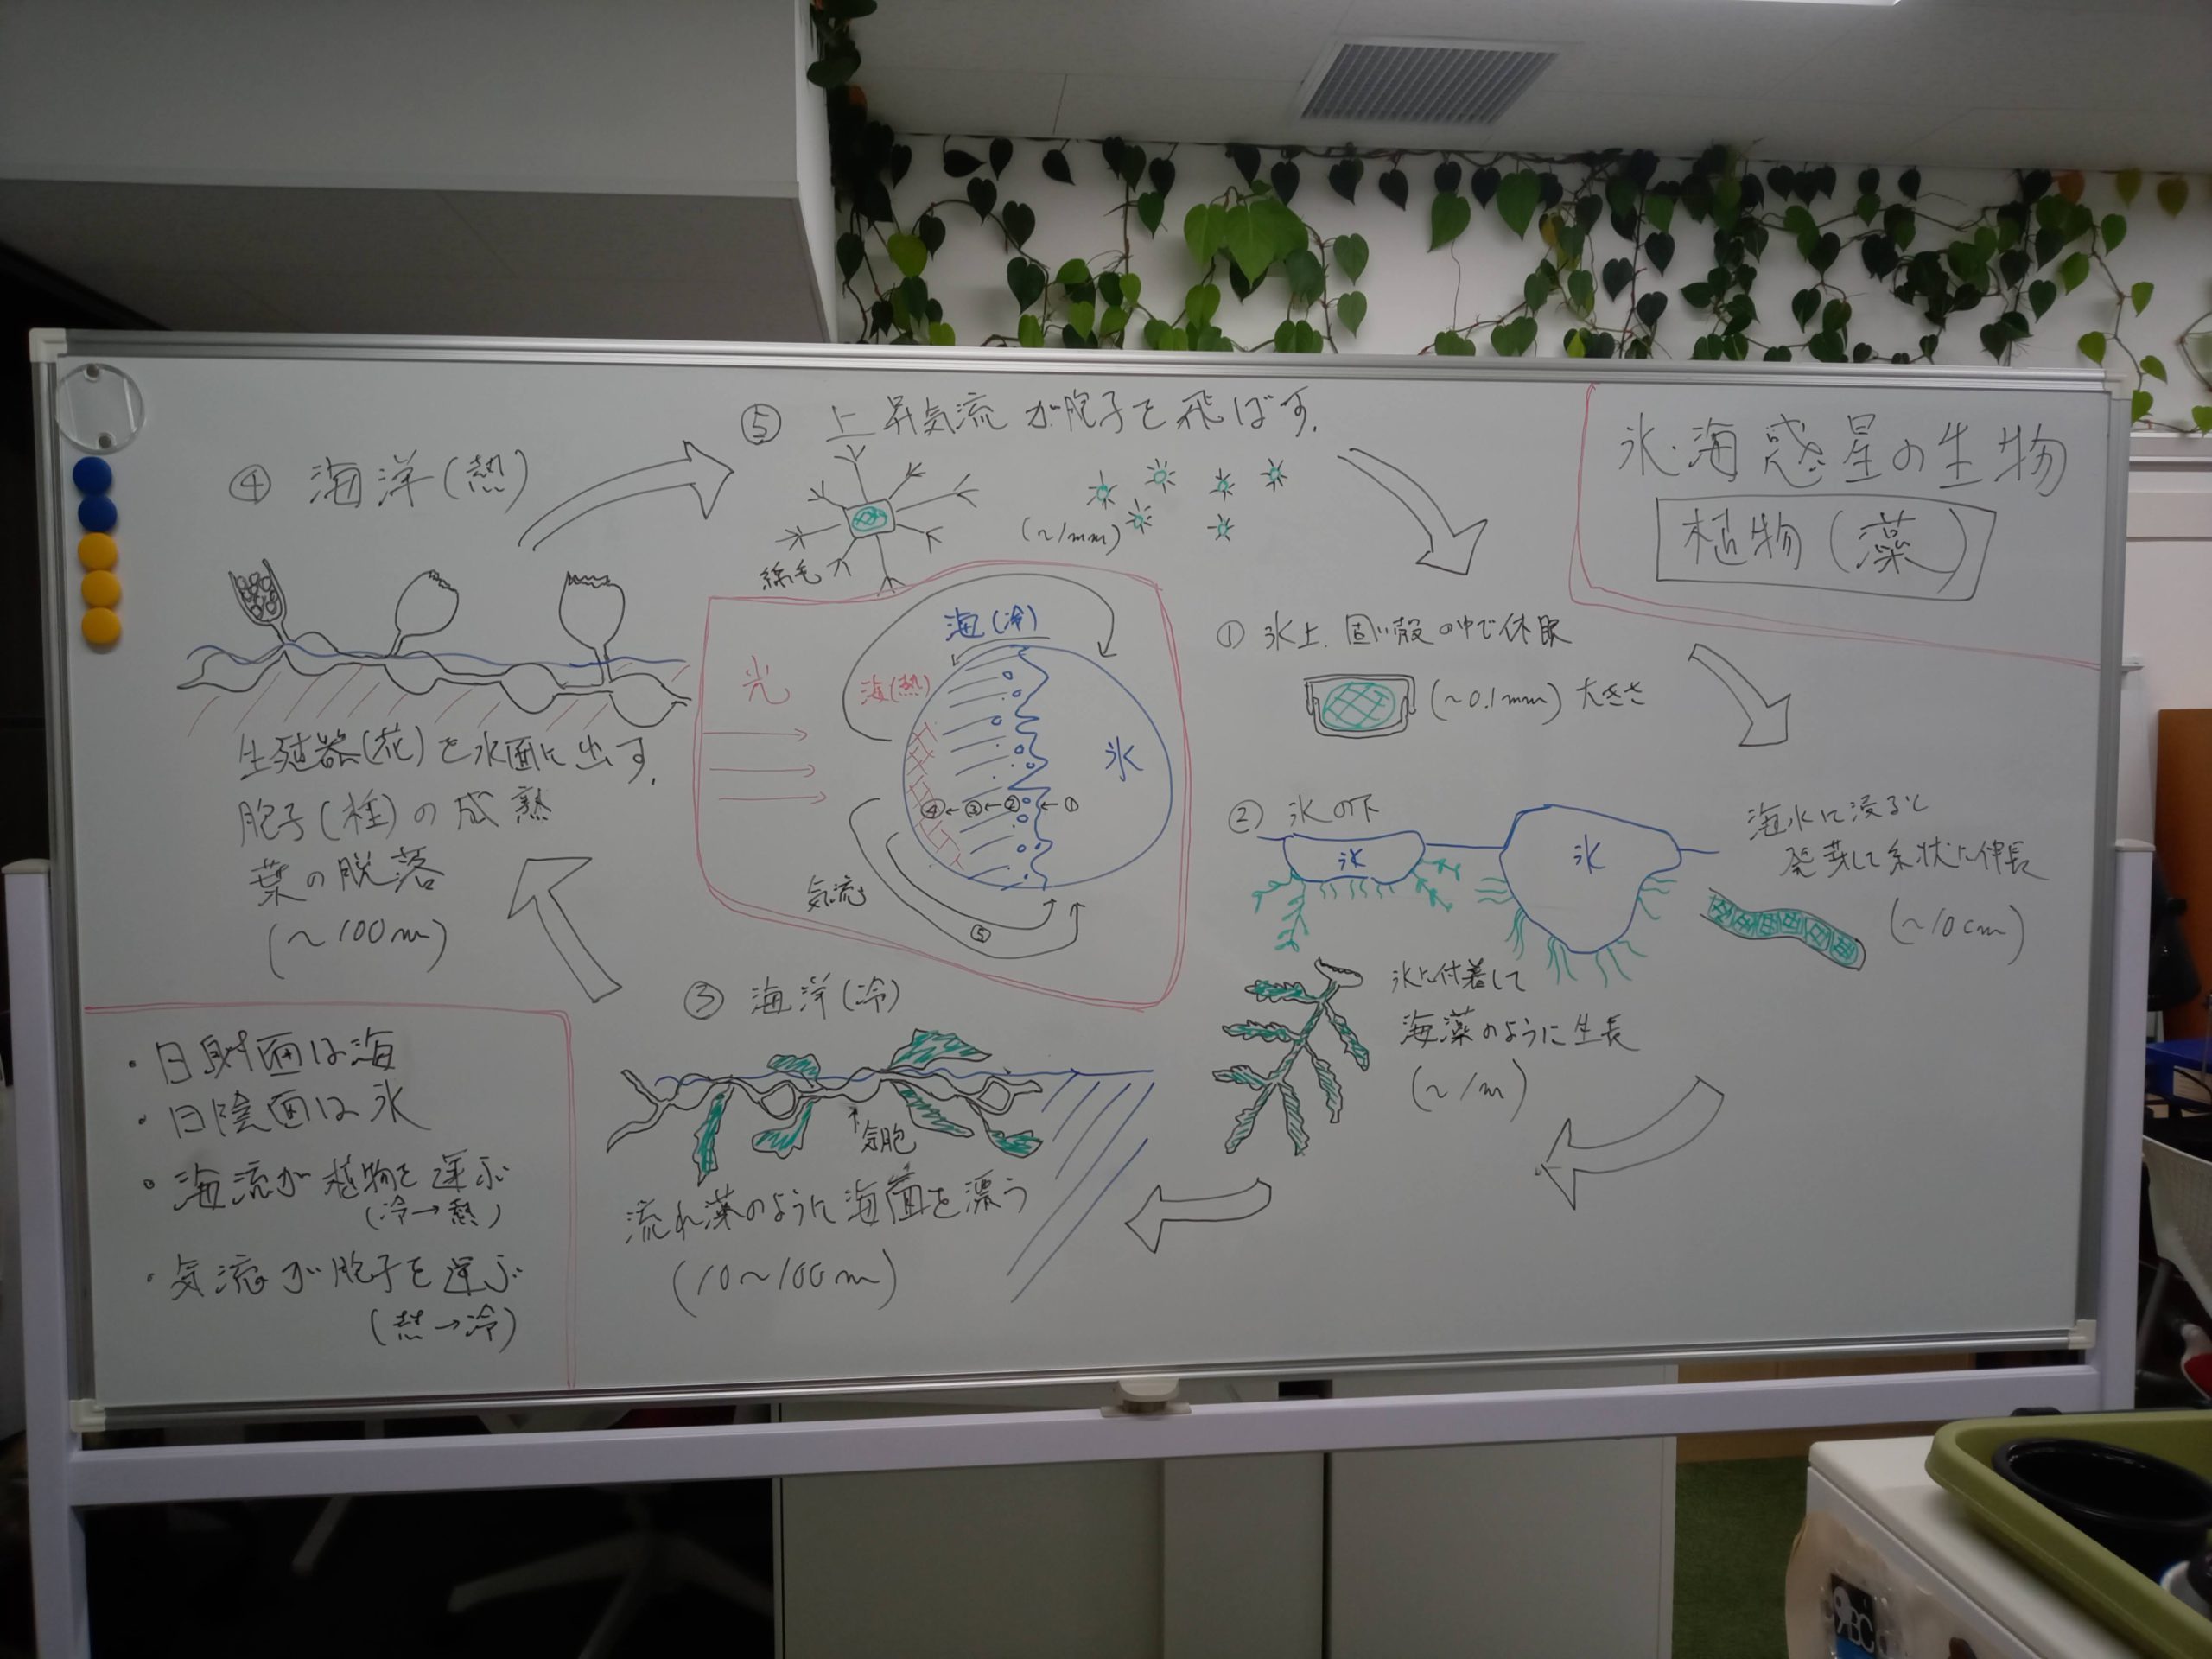 氷・海惑星の生物
植物(藻)
⑤ 上昇気流が胞子を飛ばす.
(~1mm)
綿毛
① 氷上.固い殻の中で休眠
(~0.1mm) 大きさ
② 氷の下
氷
氷
海水に浸ると
発芽して糸状に伸長
(~10cm)
氷に付着して
海藻のように生長
(~1m)
③ 海洋(冷)
気胞
流れ藻のように海面を漂う
(10~100m)
④ 海洋(熱)
生殖器(花)を水面に出す.
胞子(種)の成熟
葉の脱落
(~100m)
海(冷)
光
海(熱)
氷
④←③←②←①
気流
⑤
・日射面は海
・日陰面は氷
・海流が植物を運ぶ
(冷→熱)
・気流が胞子を運ぶ
(熱→冷)